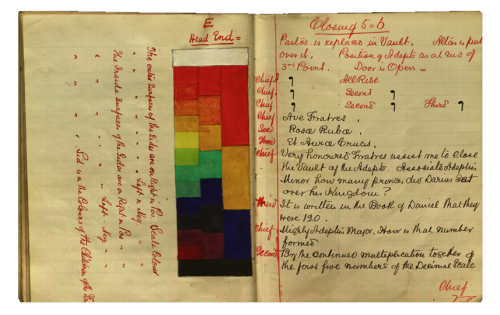 E
Head End =
The outer surface of the Sides are on Right in Pos. Scale Colour
" " " " " " Left " Neg " "
The Inside Surface of the Sides are on Right in Pos
" " " " " Left " Neg
" Lid is in the Colours of the
Closing 5=6
Pastos is replaced in Vault. Altar is put
over it. Position of Adepts as at end of
3rd Point. Door is Open =
Chief ⁊ All Rise
Chief. ⁊ Second ⁊
Chief ⁊ Second ⁊ Third ⁊
Chief Ave Fratres.
Sec Rosae Rubae.
Third Et Aurea Crucis.
Chief Very honoured Fratres assist me to close
the Vault of the Adepts. Associate Adeptus
Minor how many princes did Darius set
over his Kingdom?
Third It is written in the Book of Daniel that they
were 120.
Chief Highly Adeptus Major. How is that number
formed
Second By the continued multiplication together of
the first five numbers of the Decimal Scale
Chief